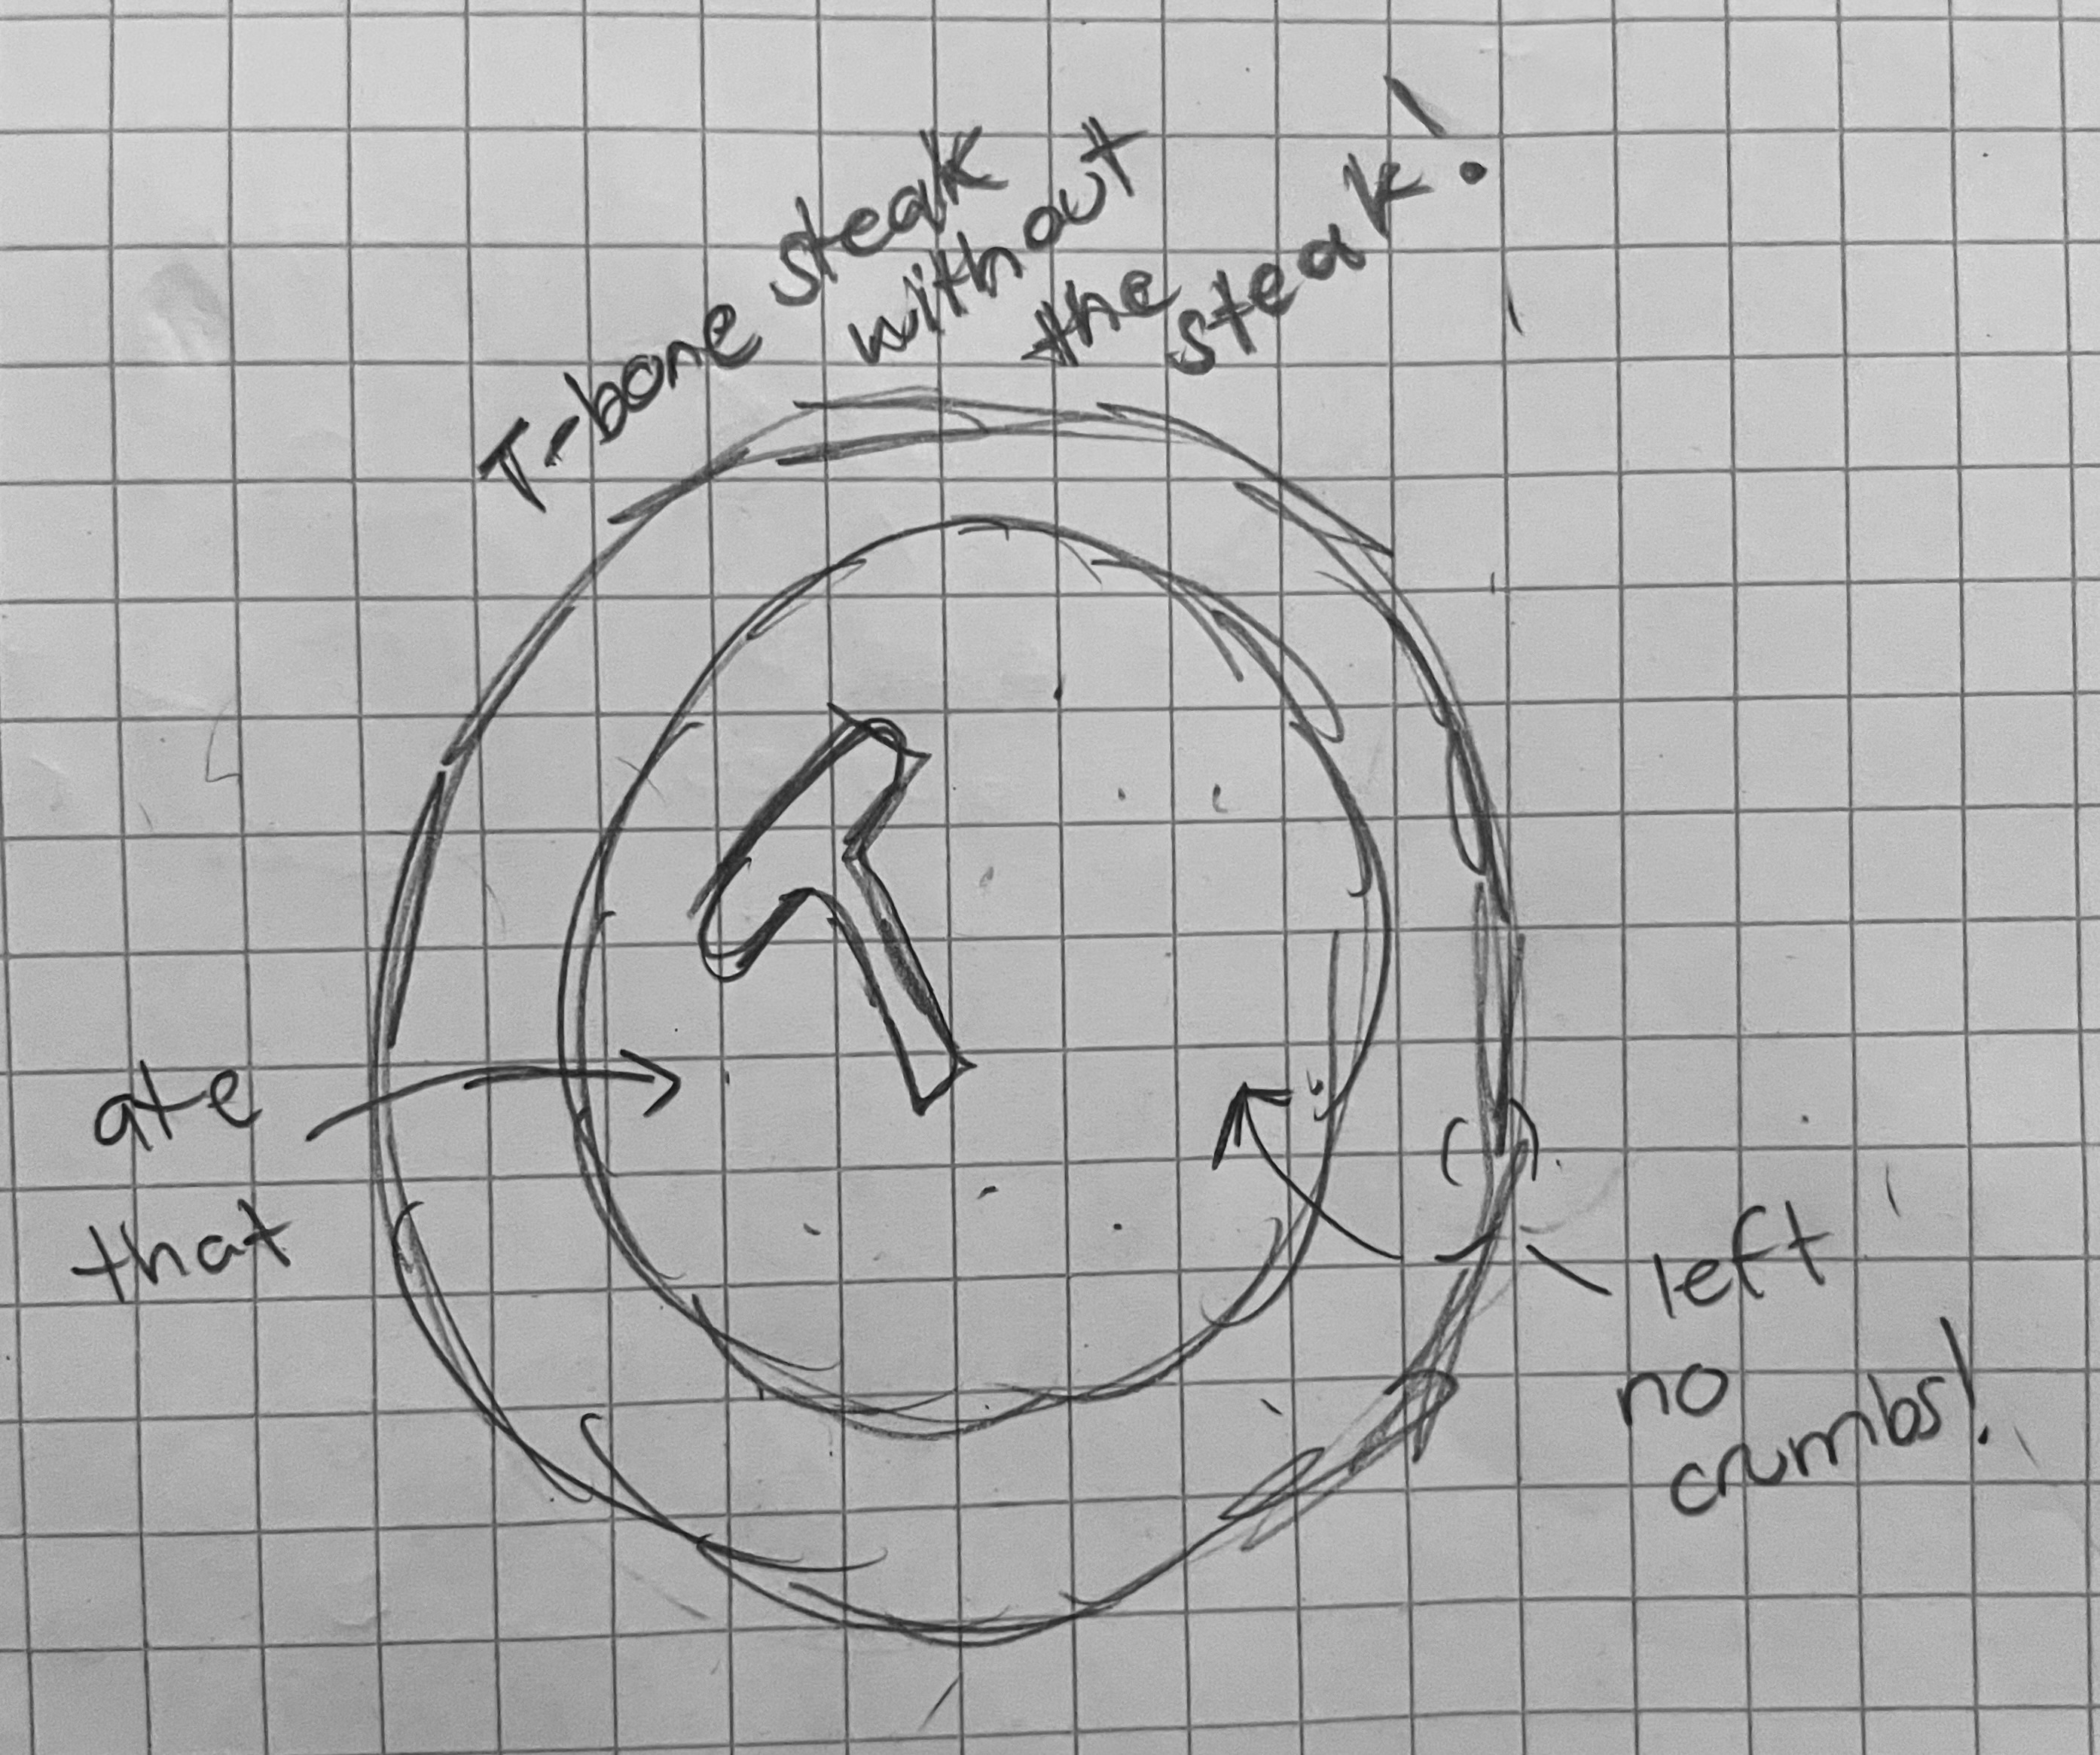 T-bone steak
without
the
steak!
ate
that
left
no
crumbs!